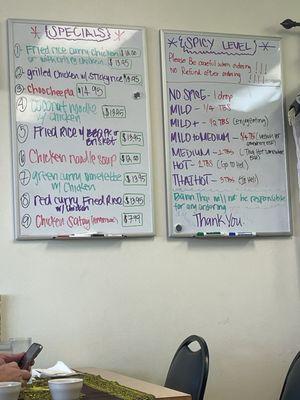 {SPECIALS}
① Fried Rice curry chicken
② grilled chicken w/ sticky rice
③ Chao cheepla $14.95
④ coconut noodle w/ chicken $13.95
⑤ Fried Rice w/ BBQ Pork or brisket $13.95
⑥ Chicken noodle soup
⑦ green curry w/ chicken $13.95
⑧ red curry Fried Rice w/ chicken $13.95
⑨ Chicken Satay $7.99
*{SPICY LEVEL}*
Please Be careful when ordering
No Refund after ordering !!!
NO SPICE - 1 drop
MILD - 1/4 TBS
MILD+ - 1/2 TBS
MILD to MEDIUM - 3/4 TBS
MEDIUM - 1 TBS
HOT - 2 TBS
THAI HOT - 3 TBS
Thai will not be responsible
for any ordering
Thank You.